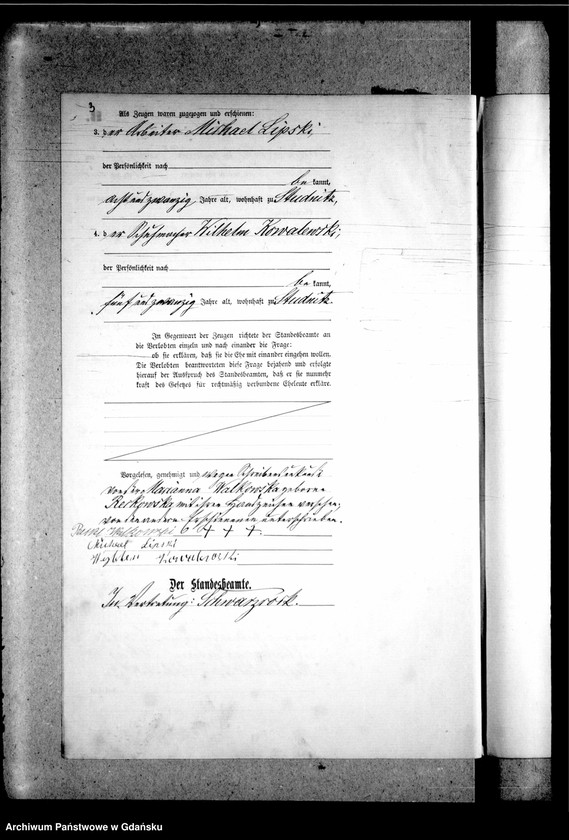 3
Als Zeugen waren zugezogen und erschienen:
3. der Arbeiter Michael Lipski,
der Persönlichkeit nach
be kannt,
acht und zwanzig Jahre alt, wohnhaft zu Studnitz,
4. der Schuhmacher Wilhelm Kowalewski,
der Persönlichkeit nach
be kannt,
fünf und zwanzig Jahre alt, wohnhaft zu Studnitz.
In Gegenwart der Zeugen richtete der Standesbeamte an
die Verlobten einzeln und nach einander die Frage:
ob sie erklären, daß sie die Ehe mit einander eingehen wollen.
Die Verlobten beantworteten diese Frage bejahend und erfolgte
hierauf der Ausspruch des Standesbeamten, daß er sie nunmehr
kraft des Gesetzes für rechtmäßig verbundene Eheleute erkläre.
Vorgelesen, genehmigt und wegen Schreibensunkunde
von der Marianna Walkowska geborene
Reskowska mit ihren Handzeichen versehen,
von den anderen Erschienenen unterschrieben.
+ + +
Michael Lipski
Kowalewski
Der Standesbeamte.
In Vertretung:
Archiwum Państwowe w Gdańsku